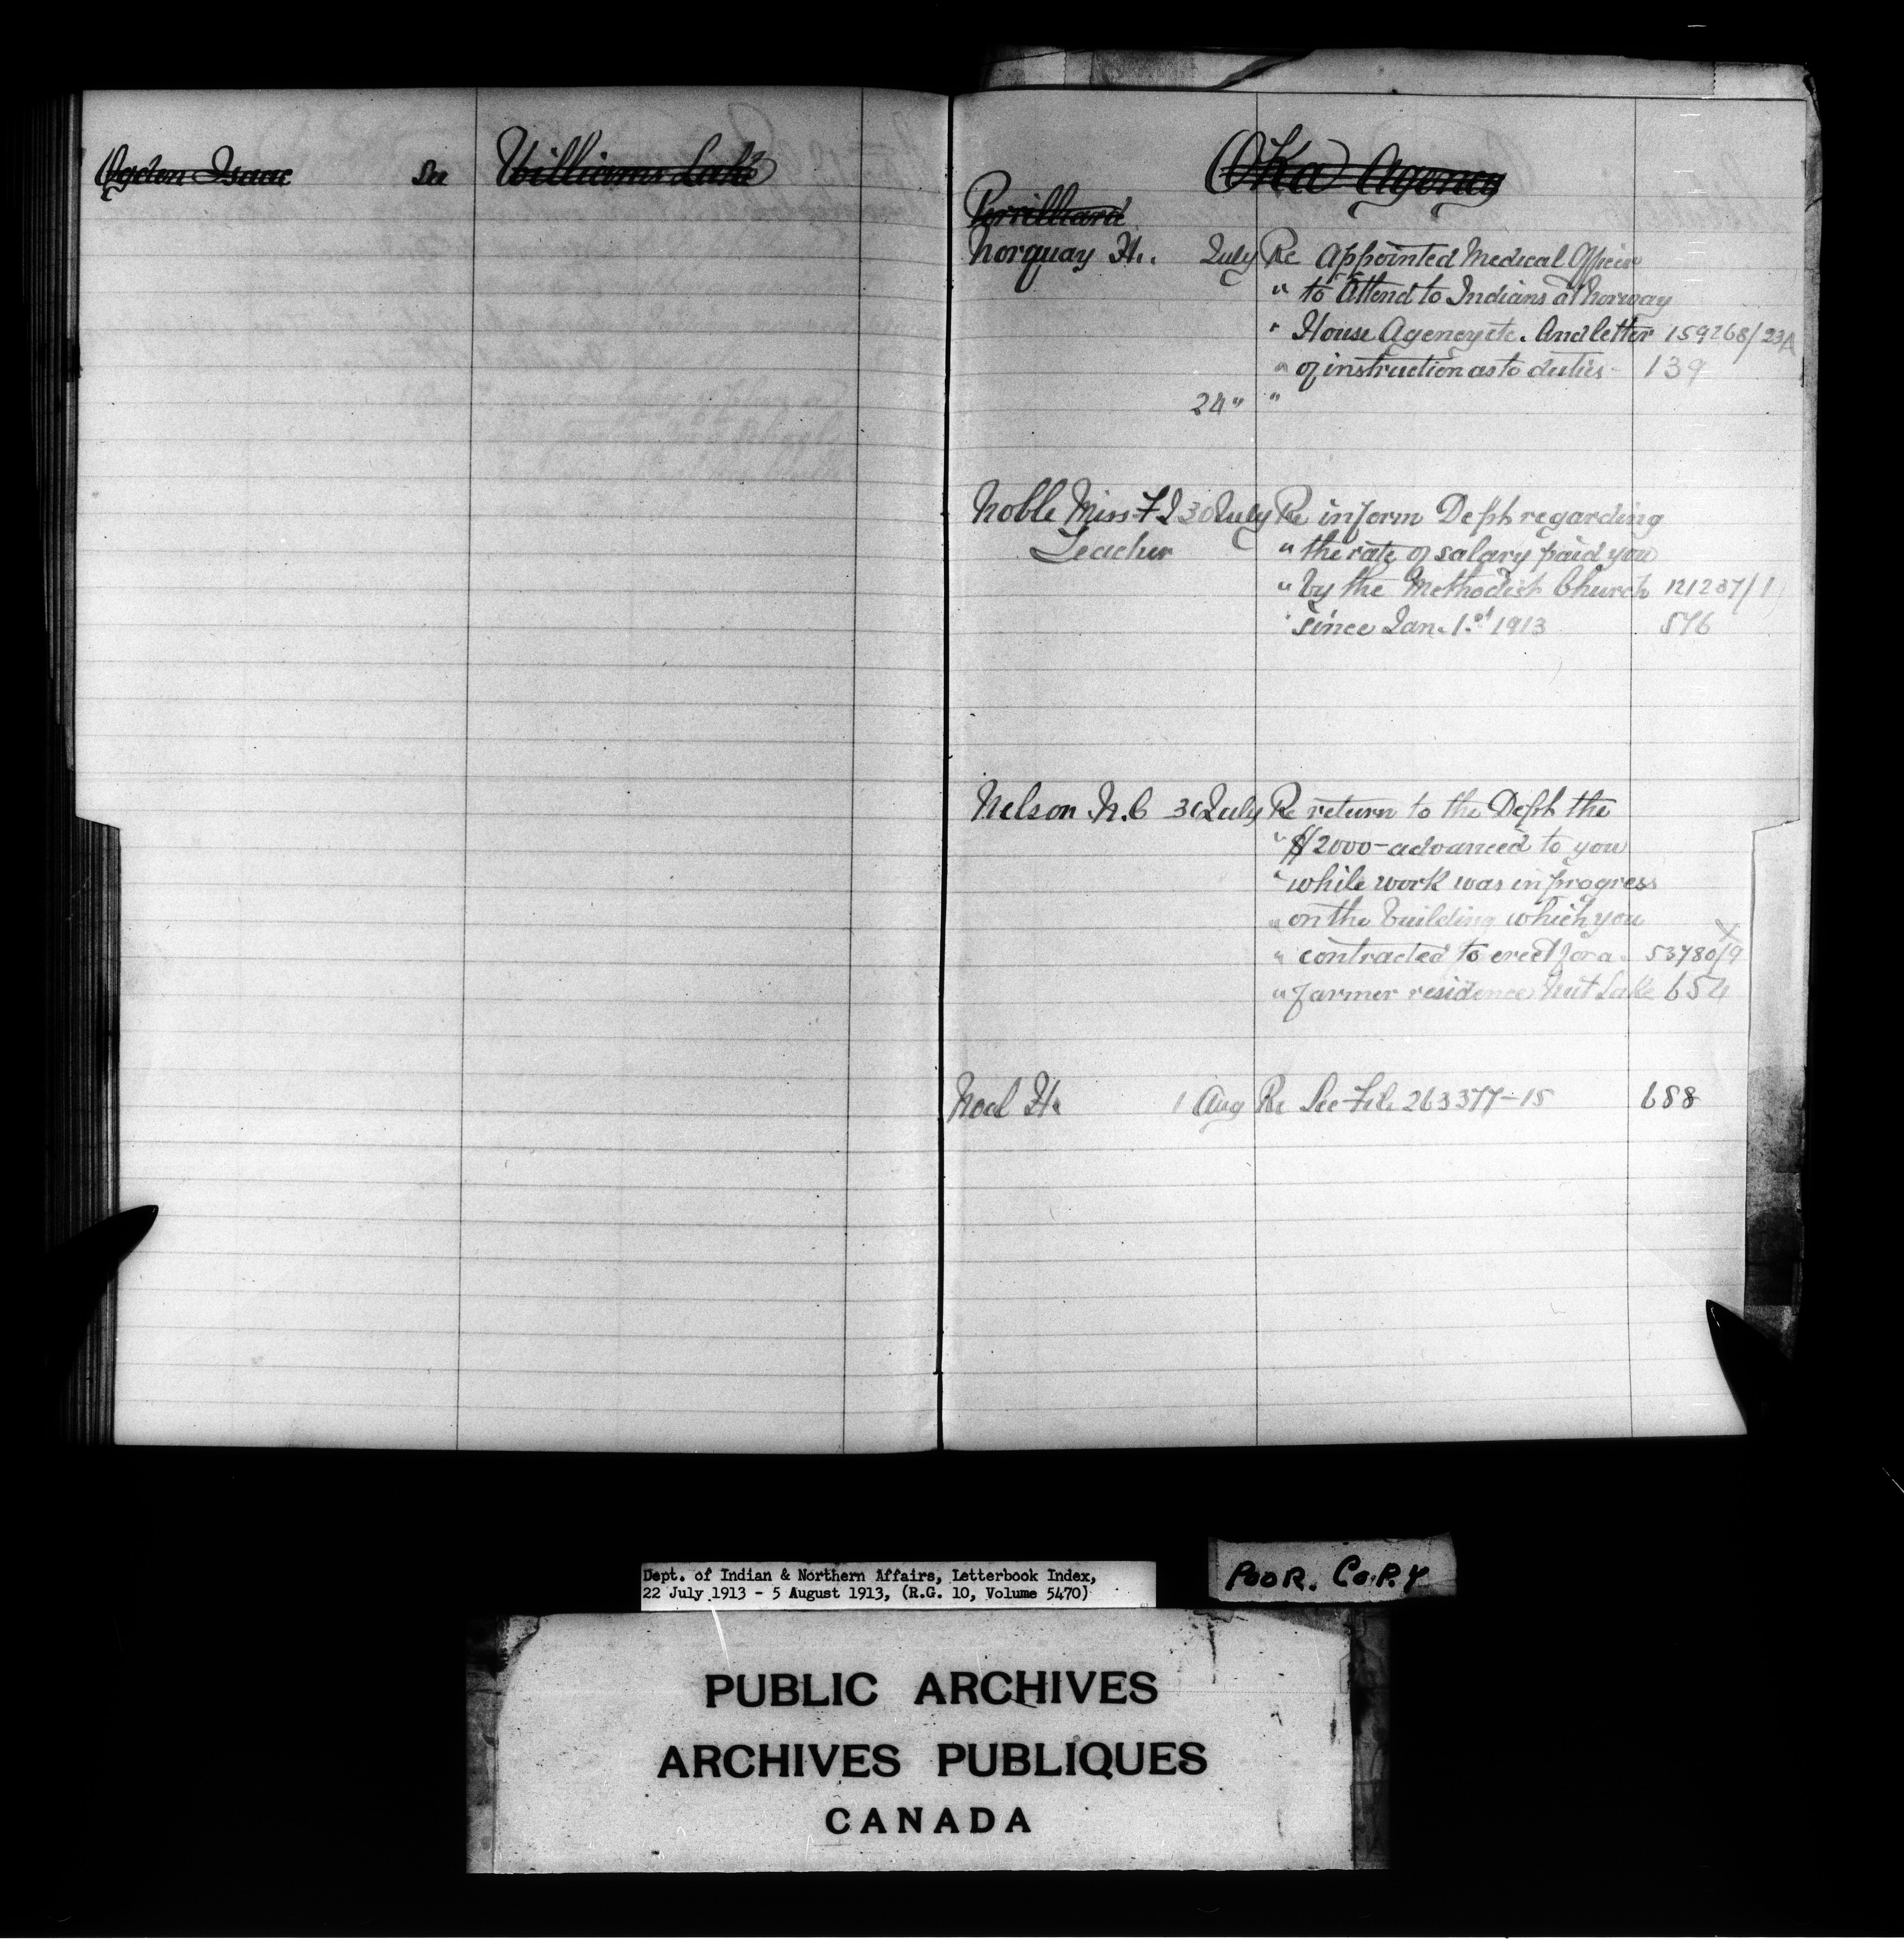 Ogden Isaac See Williams Lake
Oka Agency
Perrilliard
Norquay H. July Re Appointed Medical Officer
" to Attend to Indians at Norway
" House Agency etc. And letter 159268/23A
" of instruction as to duties - 139
24 " "
Noble Miss F I 30 July Re inform Dept regarding
Teacher " the rate of salary paid you
" by the Methodist Church 121237/1
" since Jan. 1st 1913 576
Nelson N.C 31 July Re return to the Dept the
" $2000 - advanced to you
" while work was in progress
" on the building which you
" contracted to erect for a 53780/9
" farmer residence Nut Lake 654
Noel H. 1 Aug Re See File 263377-15 688
Dept. of Indian & Northern Affairs, Letterbook Index,
22 July 1913 - 5 August 1913, (R.G. 10, Volume 5470)
POOR. COPY
PUBLIC ARCHIVES
ARCHIVES PUBLIQUES
CANADA